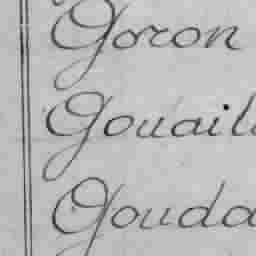 Goron
Gouail
Gouda